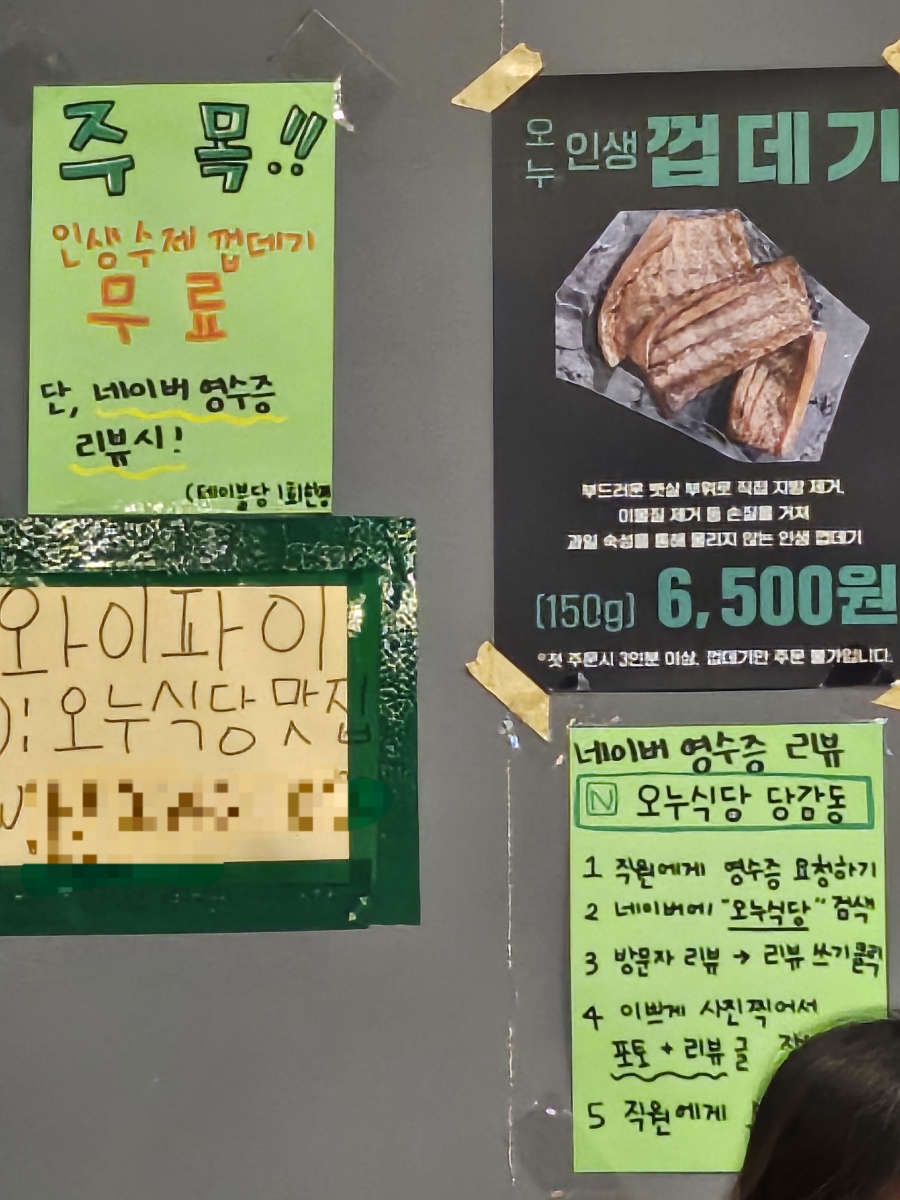 주 목!!
인생 수제 껍데기
무 료
단, 네이버 영수증
리뷰시!
(테이블당 1회한정
와이파이
오누식당맛집
오누 인생 껍데기
부드러운 뱃살 부위로 직접 지방 제거,
이물질 제거 등 손질을 거쳐
과일 숙성을 통해 물리지 않는 인생 껍데기
(150g) 6,500원
*첫 주문시 3인분 이상, 껍데기만 주문 불가입니다.
네이버 영수증 리뷰
N 오누식당 당감동
1 직원에게 영수증 요청하기
2 네이버에 "오누식당" 검색
3 방문자 리뷰 → 리뷰 쓰기 클릭
4 이쁘게 사진찍어서
포토 + 리뷰 글
5 직원에게